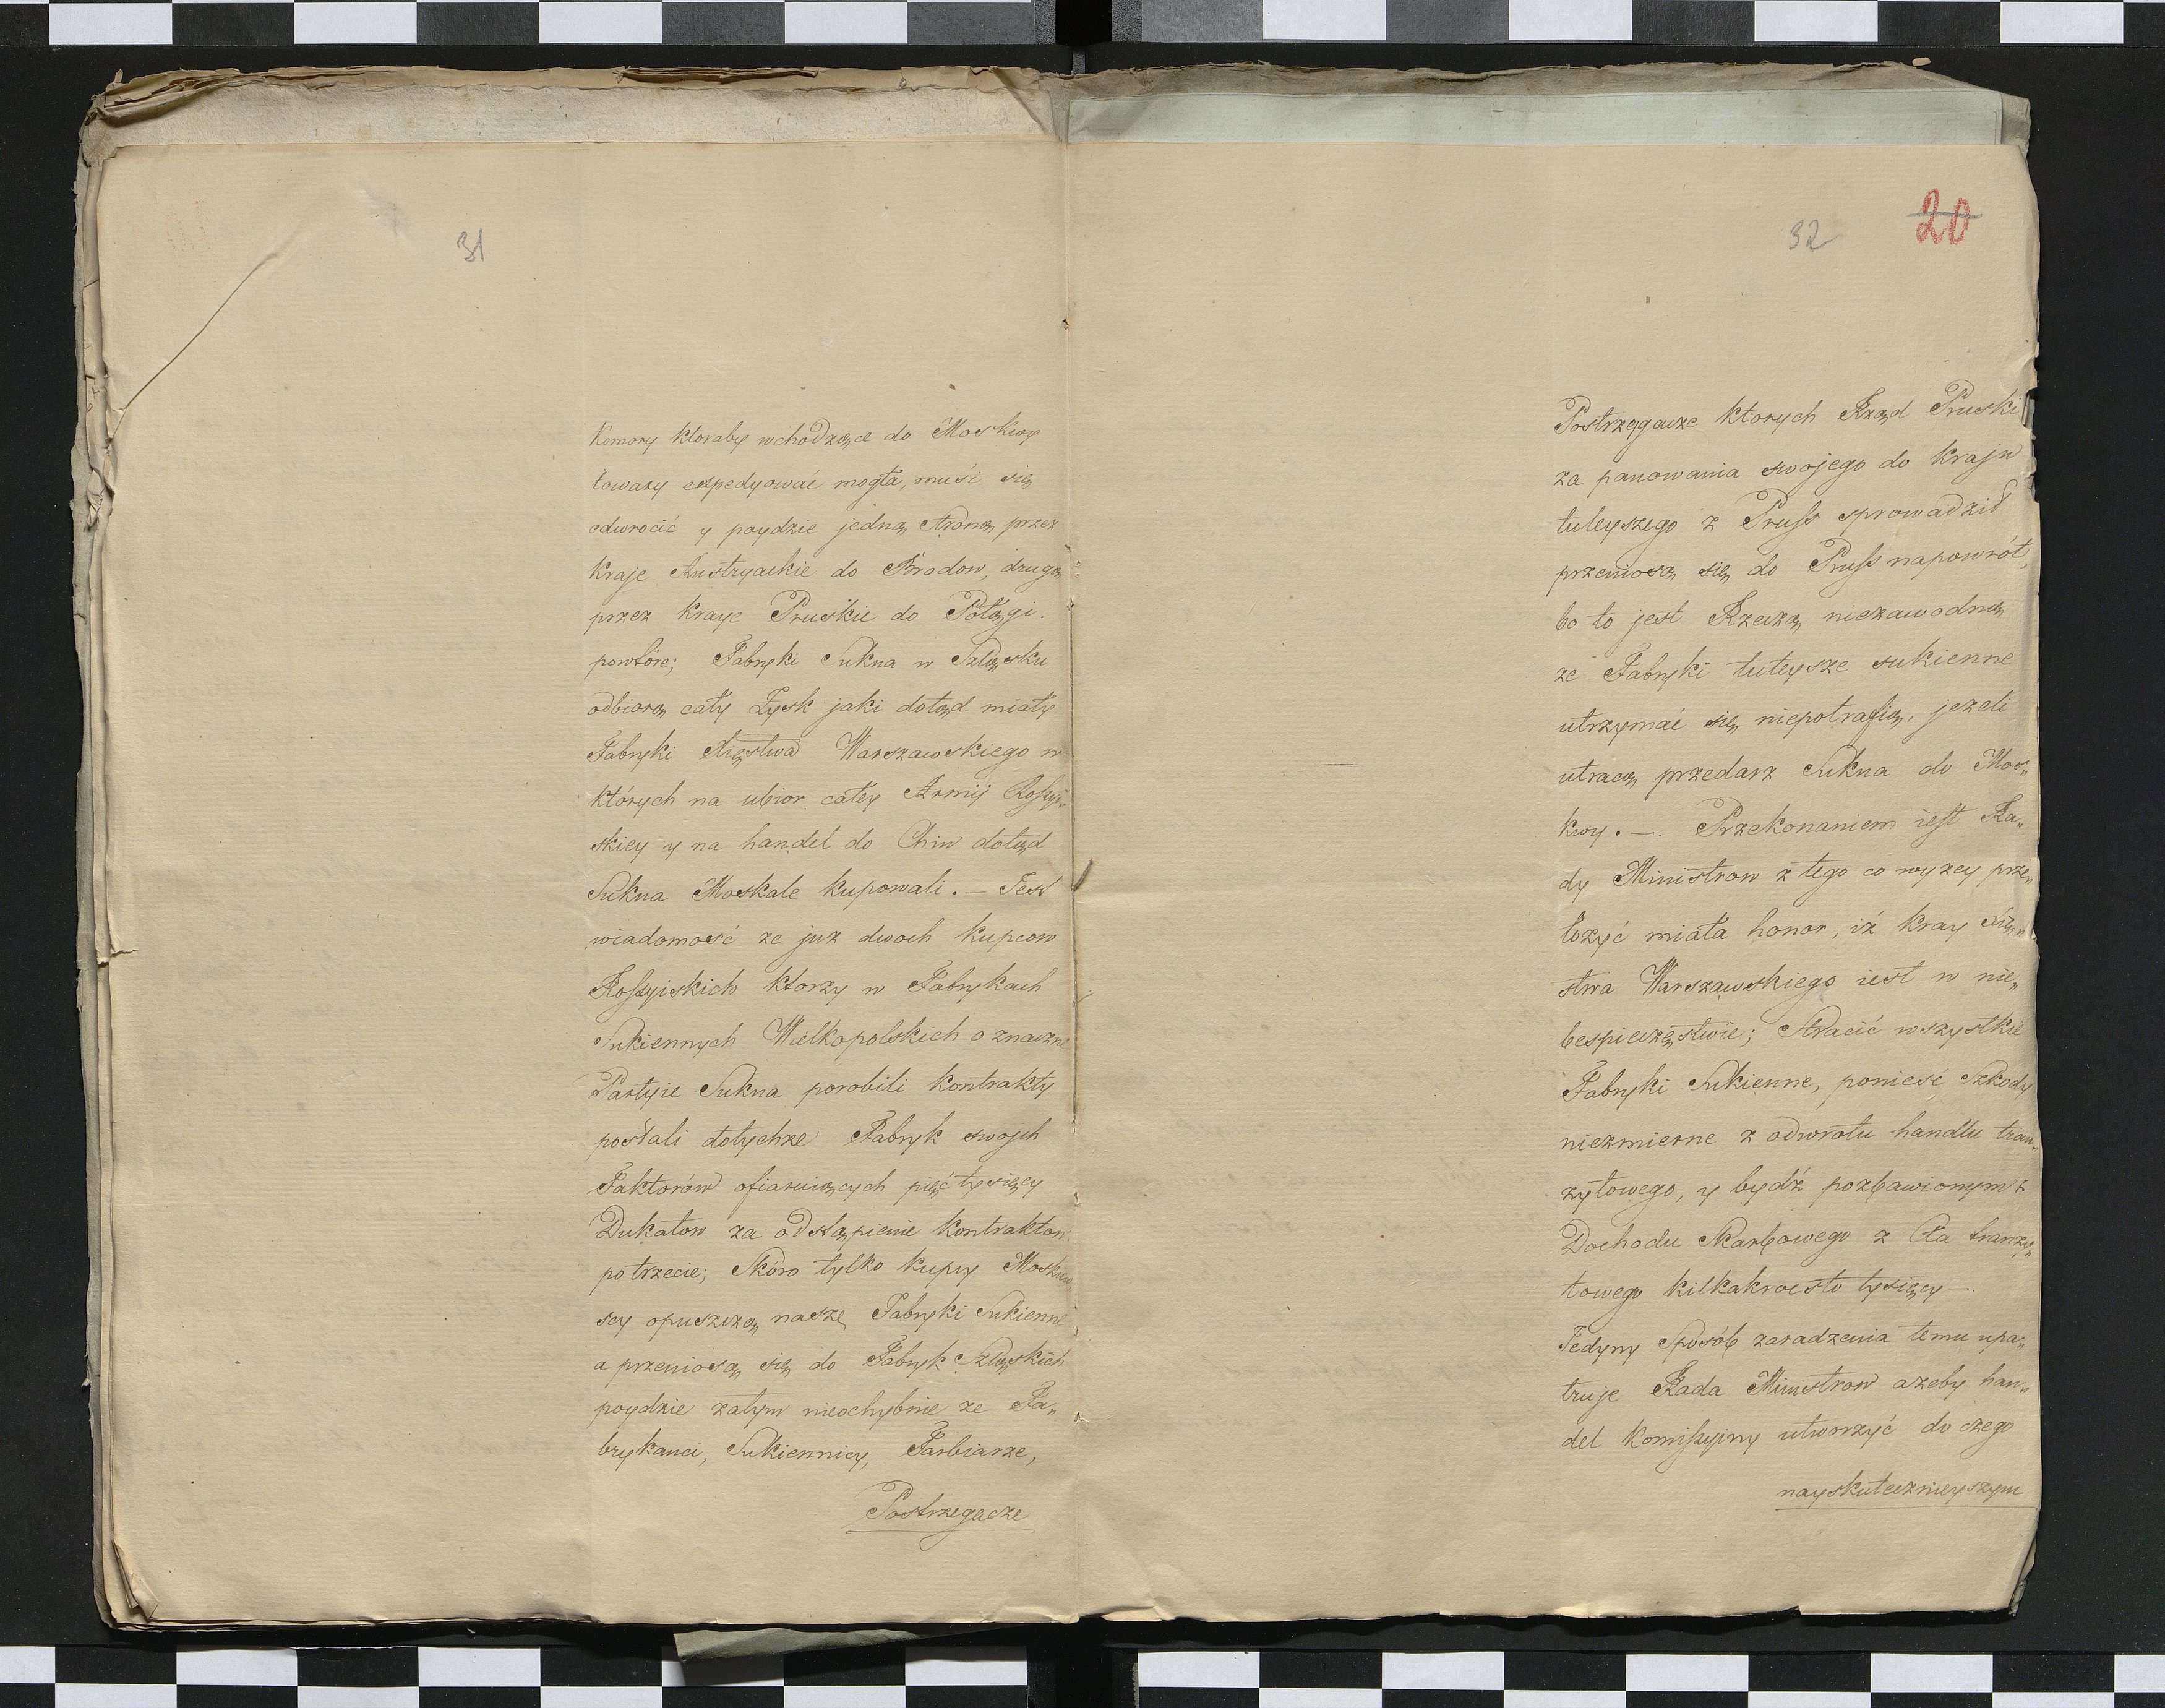 31
Komory ktoraby wchodzące do Moskwy
towary expedyować mogła, muśi się
odwrocić y poydzie jedną stroną przez
Kraje Austryackie do Brodow, drugą
przez Kraye Pruskie do Połągi.
powtóre; Fabryki Sukna w Szląsku
odbiorą cały Zysk jaki dotąd miały
Fabryki Xięstwa Warszawskiego w
których na ubior całey Armij Roſsyi„
skiey y na handel do Chin dotąd
Sukna Moskale kupowali. — Jest
wiadomość ze juz dwoch kupcow
Roſsyiskich ktorzy w Fabrykach
Sukiennych Wielkopolskich o znaczne
Partyie Sukna porobili kontrakty
posłali dotychże Fabryk swojch
Faktorów ofiaruiących pięć tysięcy
Dukatow za odstąpienie kontraktow
po trzecie; Skóro tylko kupcy Moskiew
scy opuszczą nasze Fabryki Sukienne
a przeniosą się do Fabryk Szląskich
poydzie zatym nieochybnie ze Fa„
brykanci, Sukiennicy, Farbiarze,
Postrzegacze
32 20
Postrzęgacze ktorych Rząd Pruski
za panowania swojego do Kraju
tuteyszego z Pruſs sprowadził
przeniosą się do Pruſs napowrót,
bo to jest Rzeczą niezawodną
ze Fabryki tuteysze sukienne
utrzymać się niepotrafią, jezeli
utracą przedarz Sukna do Mos„
kwy. — Przekonaniem iest Ra„
dy Ministrow z tego co wyzey prze„
łozyć miała honor, iż Kray Xię„
stwa Warszawskiego iest w nie„
bespieczęstwie; Stracić wszystkie
Fabryki Sukienne, ponieść Szkody
niezmierne z odwrotu handlu tran„
zytowego, y bydź pozbawionym z
Dochodu Skarbowego z Cła tranzy„
towego kilkakroćsto tysięcy —
Jedyny Sposób zaradzenia temu upa„
truje Rada Ministrow azeby han„
del Komiſsyiny utworzyć do czego
nayskutecznieyszym